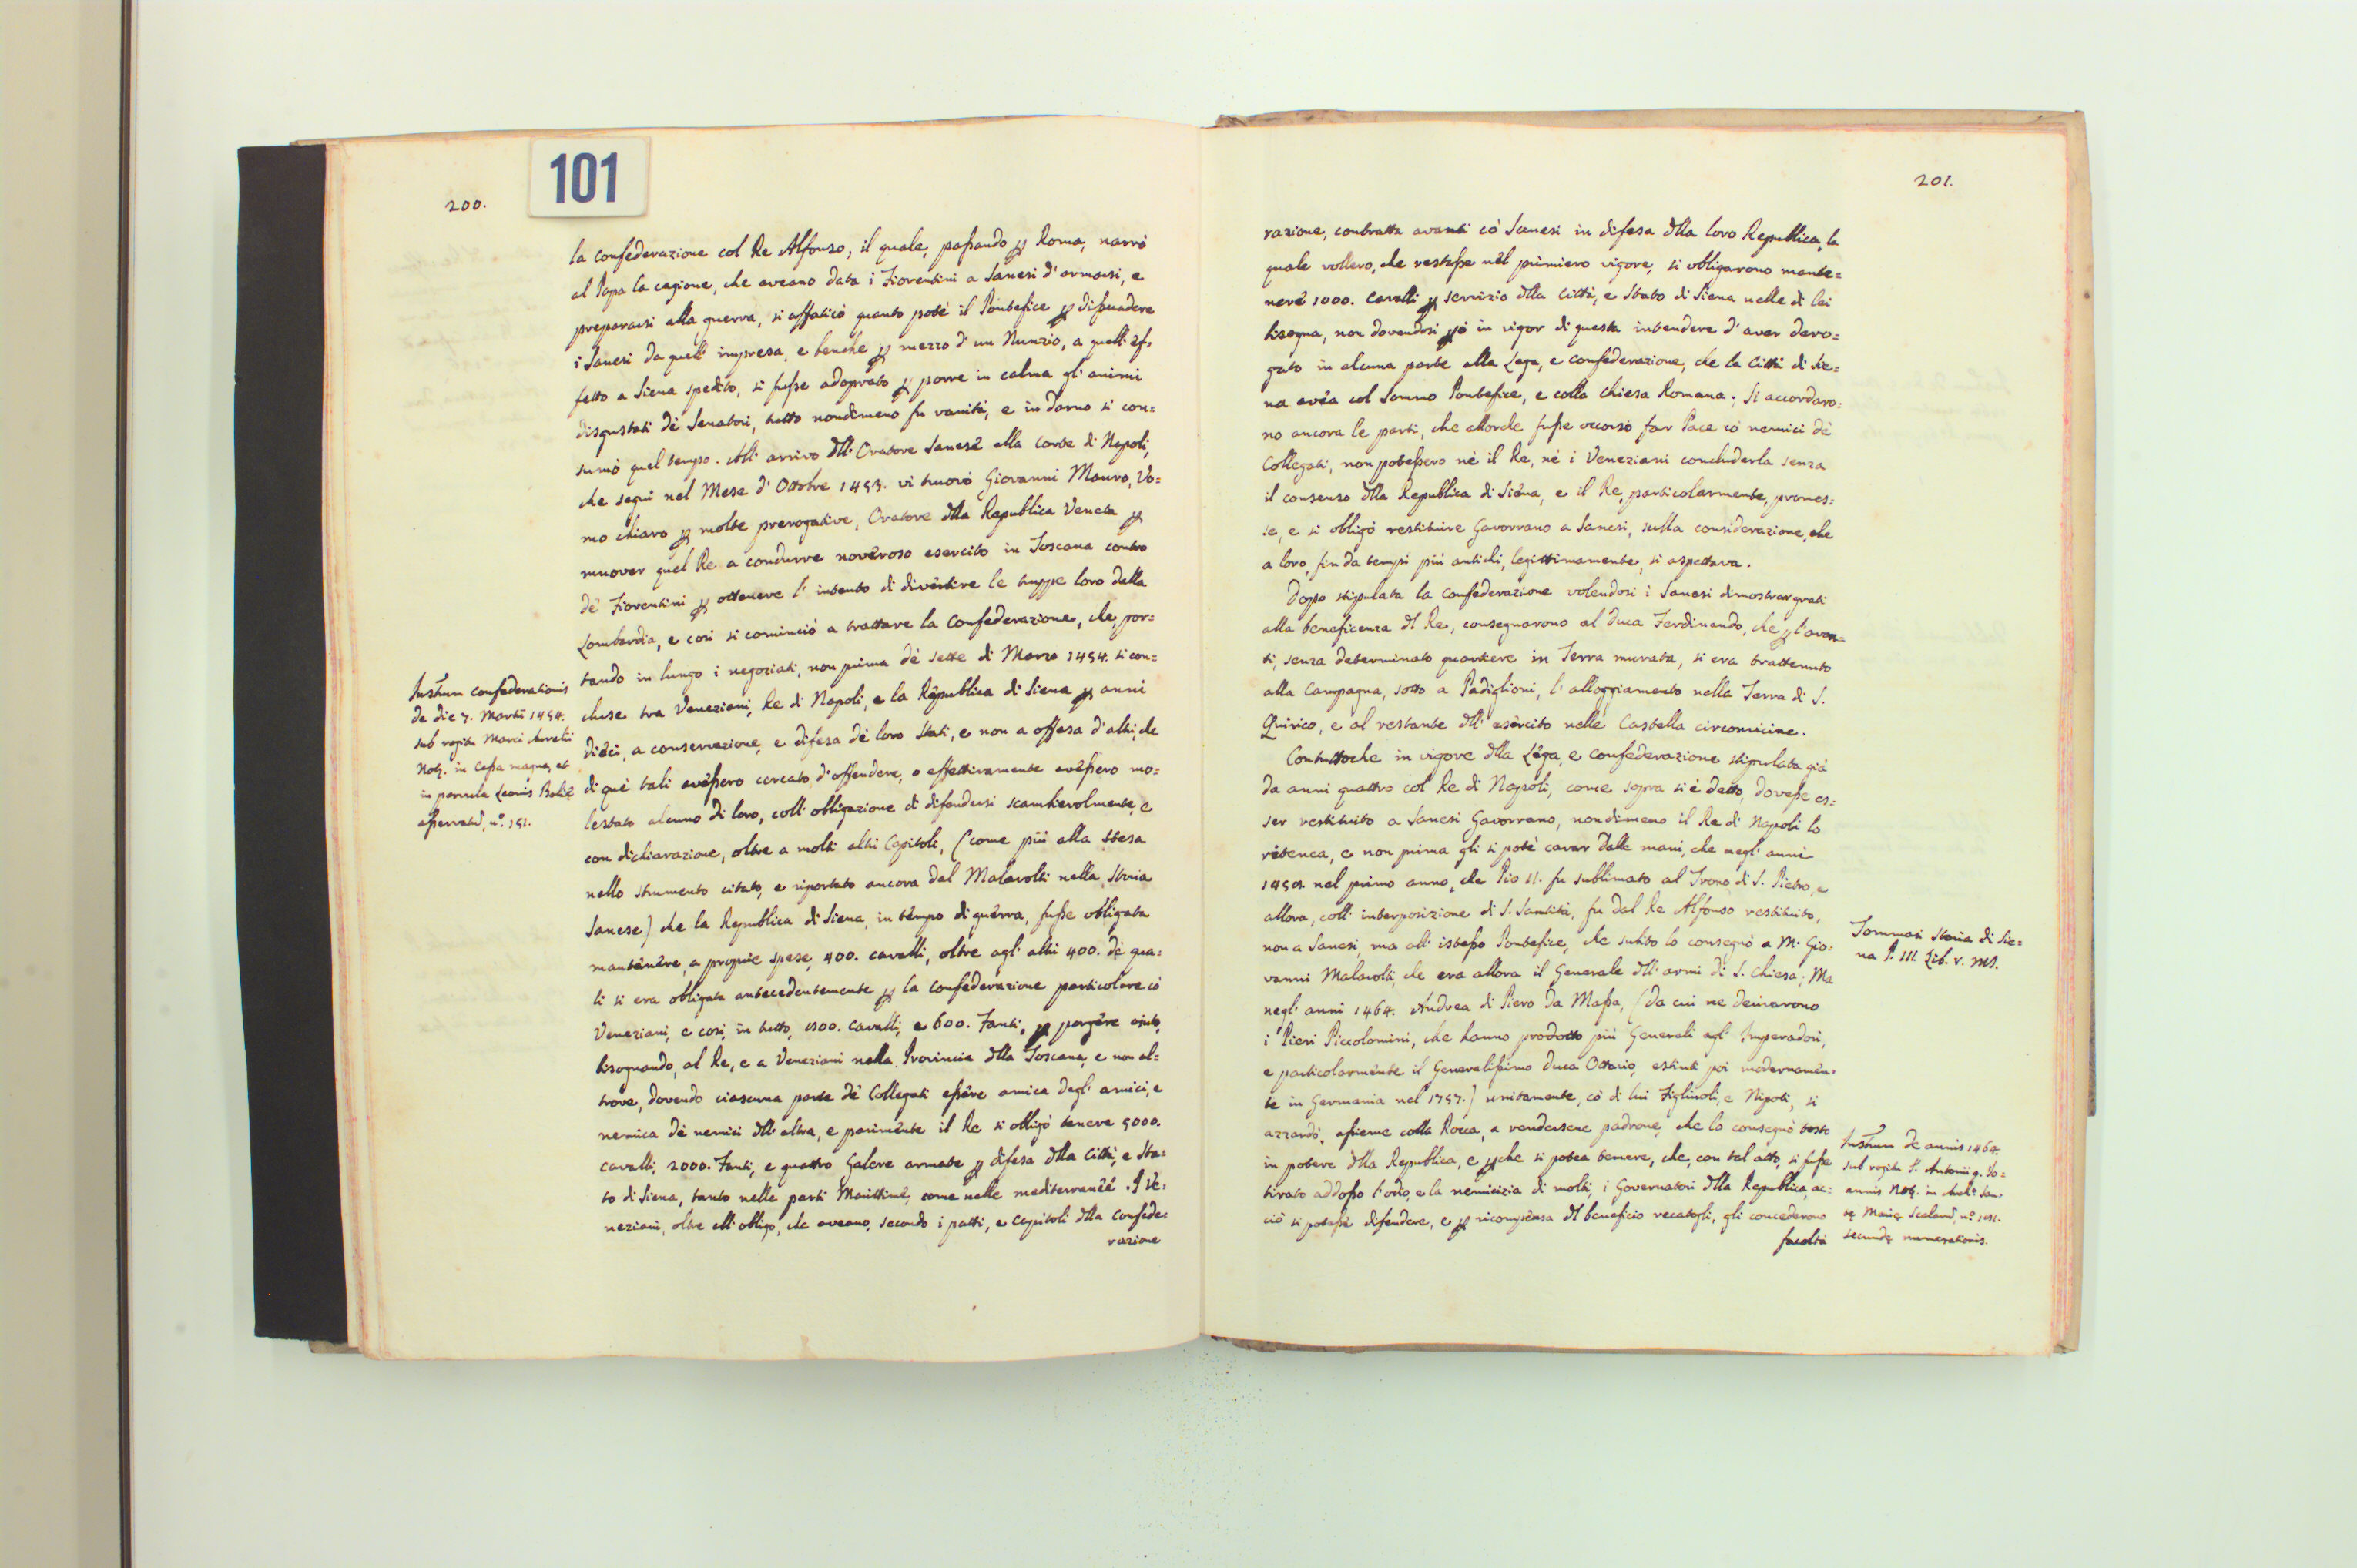 101
200.
la confederazione col Re Alfonso, il quale, passando p Roma, narrò
al Papa la cagione, che aveano data i Fiorentini a Sanesi d'armarsi, e
prepararsi alla guerra, si affaticò quanto potè il Pontefice p dissuadere
i Sanesi da quell'impresa, e benche p mezzo d'un Nunzio, a quell'ef-
fetto a Siena spedito, si fusse adoprato p porre in calma gl'animi
disgustati dè Senatori, tutto nondimeno fu vanità, e in darno si con=
sumò quel tempo. All'arrivo dll'Oratore Sanese alla Corte di Napoli,
che seguì nel Mese d'Ottobre 1453. vi trovò Giovanni Mauro, Vo=
mo chiaro p molte prerogative, Oratore dlla Republica Veneta p
muover quel Re a condurre noveroso esercito in Toscana contro
dè Fiorentini p ottenere l'intento di divertire le truppe loro dalla
Lombardia, e così si cominciò a trattare la Confederazione, che, por=
tando in lungo i negoziati, non prima dè sette di Marzo 1454. si con=
chiuse tra Veneziani, Re di Napoli, e la Republica di Siena p anni
dieci, a conservazione, e difesa dè loro Stati, e non a offesa d'altri, che
di què tali avessero cercato d'offendere, o effettivamente avessero mo=
lestato alcuno di loro, coll'obligazione di difendersi scambievolmente, e
con dichiarazione, oltre a molti altri Capitoli, (come più alla stesa
nello strumento citato, e riportato ancora dal Malavolti nella Storia
Sanese) che la Republica di Siena, in tempo di guerra, fusse obligata
mantenere, a proprie spese, 400. cavalli, oltre agl'altri 400. dè qua=
li si era obligata antecedentemente p la confederazione particolare cò
Veneziani, e così, in tutto, 800. cavalli, e 600. Fanti, p porgere aiuto,
bisognando, al Re, e a Veneziani nella Provincia dlla Toscana, e non al=
trove, dovendo ciascuna parte dè Collegati essere amica degl'amici, e
nemica dè nemici dll'altra, e parimente il Re si obligò tenere 5000.
cavalli, 2000. Fanti, e quattro Galere armate p difesa dlla Città, e Sta=
to di Siena, tanto nelle parti Marittime, come nelle mediterranee. I Ve=
neziani, oltre all'obligo, che aveano, secondo i patti, e Capitoli dlla Confede=
razione
Instrum confederationis
de die 7. Martii 1454.
sub rogitu Marci Aurelii
Notӡ. in Cassa magna, et
in parvula Leonis
asservatū, n.º 151.
201.
razione, contratta avanti cò Sanesi in difesa dlla loro Republica, la
quale vollero, che restasse nel primiero vigore, si obligarono mante=
nere 1000. Cavalli p servizio dlla Città, e Stato di Siena nelle di lei
bisogna, non dovendosi pò in vigor di questa intendere d'aver dero=
gato in alcuna parte alla Lega, e confederazione, che la Città di Sie=
na avea col Sommo Pontefice, e colla Chiesa Romana. Si accordaro=
no ancora le parti, che allorche fusse occorso far Pace cò nemici dè
Collegati, non potessero nè il Re, nè i Veneziani concluderla senza
il consenso dlla Republica di Siena, e il Re, particolarmente, promes=
se, e si obligò restituire Gavorrano a Sanesi, sulla considerazione, che
a loro, fin da tempi più antichi, legittimamente, si aspettava.
Dopo stipulata la Confederazione volendosi i Sanesi dimostrar grati
alla beneficenza dl Re, consegnarono al Duca Ferdinando, che p l'avan=
ti, senza determinato quartiere in Terra murata, si era trattenuto
alla Campagna, sotto a Padiglioni, l'alloggiamento nella Terra di S.
Quirico, e al restante dll'esercito nelle Castella circonvicine.
Contuttoche in vigore dlla Lega, e confederazione stipulata già
da anni quattro col Re di Napoli, come sopra si è detto, dovesse es=
ser restituito a Sanesi Gavorrano, nondimeno il Re di Napoli lo
ritenea, e non prima gli si potè cavar dalle mani, che negl'anni
nel primo anno, che Pio II. fu sublimato al Trono di S. Pietro, e
allora, coll'interposizione di S. Santità, fu dal Re Alfonso restituito,
non a Sanesi, ma all'istesso Pontefice, che subito lo consegnò a M. Gio=
vanni Malavolti, che era allora il Generale dll'armi di S. Chiesa; Ma
negl'anni 1464. Andrea di Piero da Massa, (da cui ne derivarono
i Pieri Piccolomini, che hanno prodotto più Generali agl'Imperadori,
e particolarmente il Generalissimo Duca Ottavio, estinti poi modernamen=
te in Germania nel 1757.) unitamente, cò di lui Figliuoli, e Nipoti, si
azzardò, assieme colla Rocca, a rendersene padrone, che lo consegnò tosto
in potere dlla Republica, e pche si potea temere, che, con tal atto, si fusse
tirato addosso l'odio, e la nemicizia di molti, i Governatori dlla Republica, ac=
ciò si potesse difendere, e p ricompensa dl beneficio recatogli, gli concederono
facoltà
Tommasi Storia di Sie=
na P. III. Lib. V. MS.
Instrum de annis 1464.
sub rogitu S. Antonii q. Jo=
annis Notӡ. in Archº San=
tę Marię Scalarū, n.º 1051.
secundę numerationis.